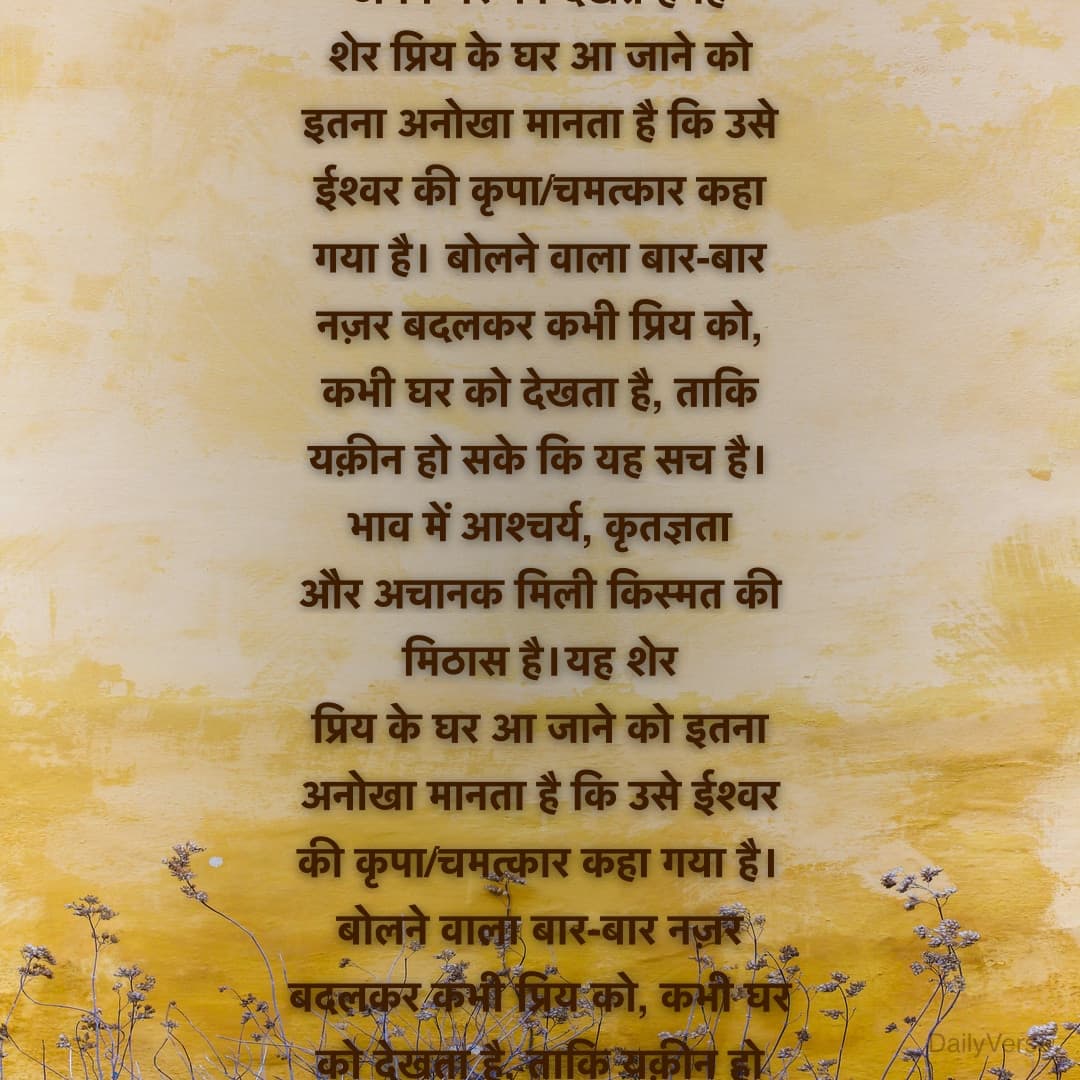 शेर प्रिय के घर आ जाने को
इतना अनोखा मानता है कि उसे
ईश्वर की कृपा/चमत्कार कहा
गया है। बोलने वाला बार-बार
नज़र बदलकर कभी प्रिय को,
कभी घर को देखता है, ताकि
यक़ीन हो सके कि यह सच है।
भाव में आश्चर्य, कृतज्ञता
और अचानक मिली किस्मत की
मिठास है।यह शेर
प्रिय के घर आ जाने को इतना
अनोखा मानता है कि उसे ईश्वर
की कृपा/चमत्कार कहा गया है।
बोलने वाला बार-बार नज़र
बदलकर कभी प्रिय को, कभी घर
को देखता है, ताकि यक़ीन हो